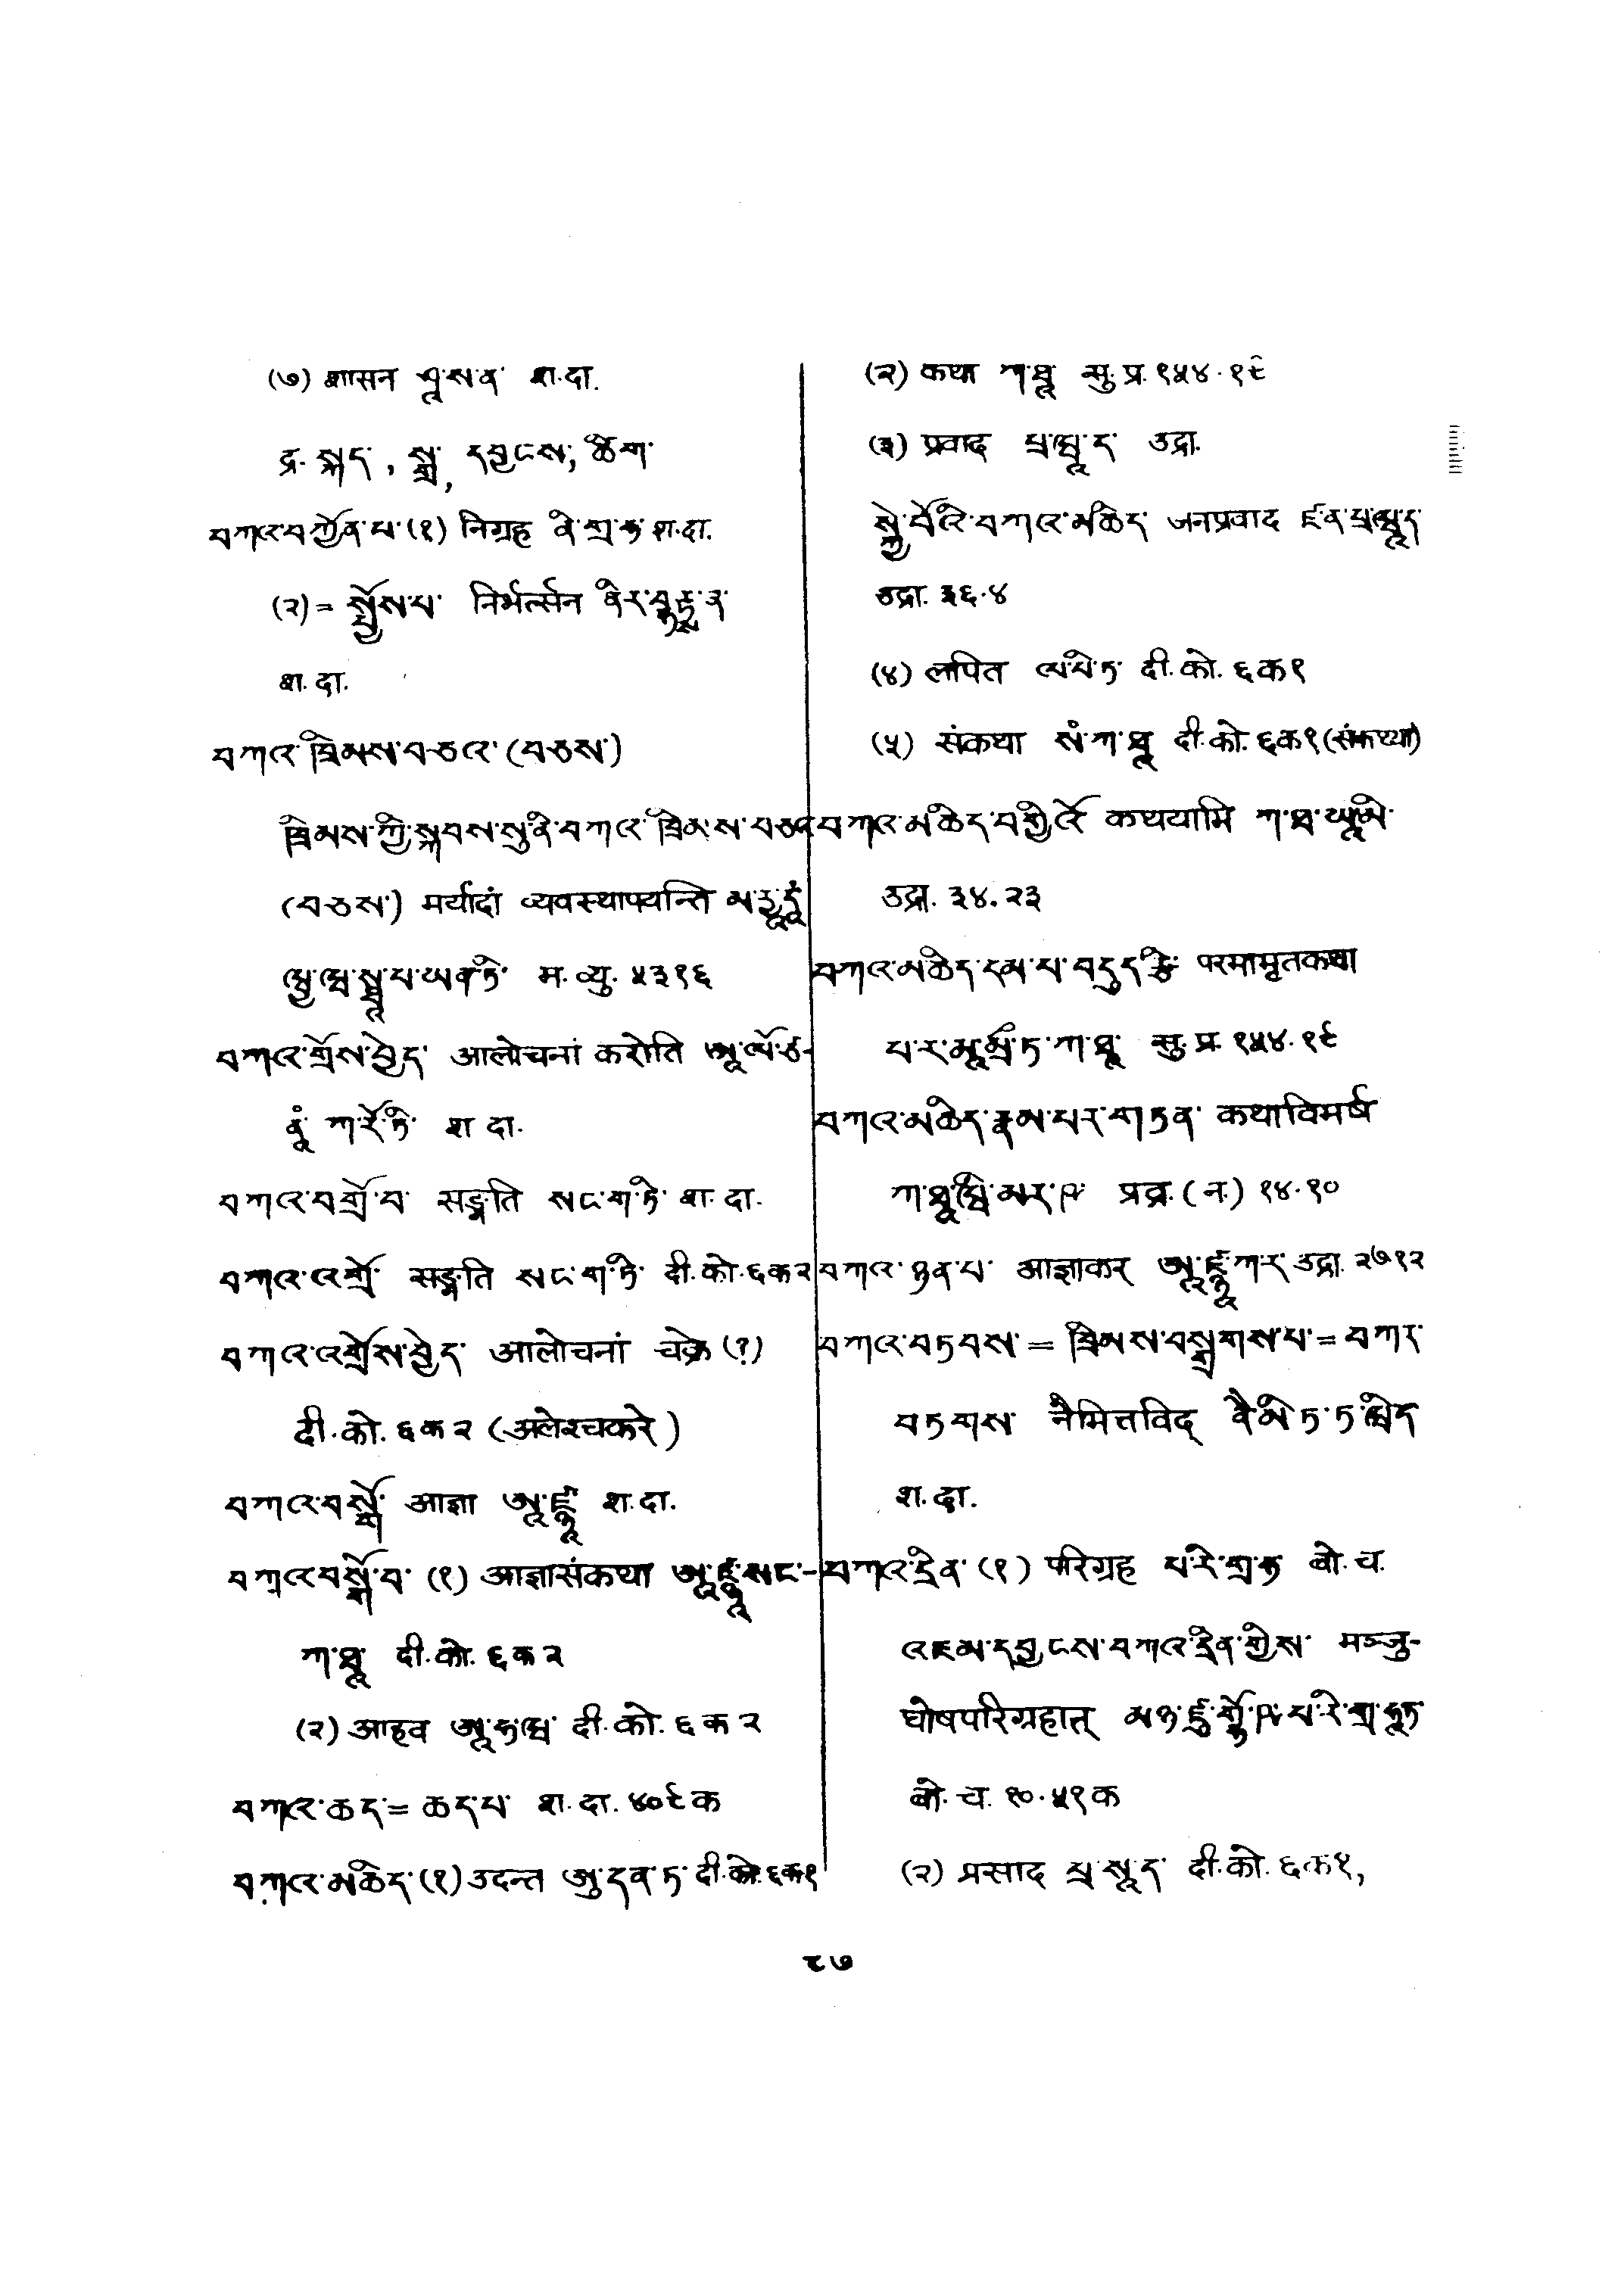 (७) शासन ཤཱ་ས་ན་ श.दा.
द्र. སྐད་, སྒྲ, དབྱངས་, ཚིག་
བཀའ་བཀྱོན་པ་ (१) निग्रह ནི་གྲ་ཧ श.दा.
(२) = སྤྱོས་པ་ निर्भर्त्सन ནིར་བྷརྟྶ་ན་
श.दा.
བཀའ་ཁྲིམས་བཅའ་ (བཅས་)
ཁྲིམས་ཀྱི་སྐབས་སུ་ནི་བཀའ་ཁྲིམས་བཅའ
(བཅས་) मर्यादां व्यवस्थापयन्ति མརྱཱ་དཱཾ
ཝྱ་ཝ་སྠཱ་པ་ཡནྟི་ म.व्यु. ५३१६
བཀའ་གྲོས་བྱེད་ आलोचनां करोति ཨཱ་ལོ་ཙ-
ནཱཾ་ ཀ་རོ་ཏི་ श दा.
བཀའ་བགྲོ་བ་ सङ्गति སང་ག་ཏི་ श.दा.
བཀའ་འགྲོ་ सङ्गति སང་ག་ཏི་ दी.को.६क२
བཀའ་འགྲོས་བྱེད་ आलोचनां चक्रे (?)
दी.को. ६क२ (अलेश्चकरे)
བཀའ་བསྒོ་ आज्ञा ཨཱ་ཛྙཱ श.दा.
བཀའ་བསྒོ་བ་ (१) आज्ञासंकथा ཨཱ་ཛྙཱ་སང-
ཀ་ཐཱ་ दी.को. ६क२
(२) आहव ཨཱ་ཧ་ཝ་ दी.को. ६क२
བཀའ་ཆད་= ཆད་པ་ श.दा. ४०९क
བཀའ་མཆིད་ (१) उदन्त ཨུ་དན་ཏ་ दी.को.६क१
(२) कथा ཀ་ཐཱ सु.प्र. १५४.१९
(३) प्रवाद པྲ་ཝཱ་ད་ उद्रा.
སྐྱེ་བོའི་བཀའ་མཆིད་ जनप्रवाद ཛ་ན་པྲ་ཝཱད་
उद्रा. ३६.४
(४) लपित ལ་པི་ཏ་ दी.को. ६क१
(५) संकथा སཾ་ཀ་ཐཱ दी.को. ६क१(संकथ्या)
བཀའ་མཆིད་བགྱིའོ་ कथयामि ཀ་ཐ་ཡཱ་མི་
उद्रा. ३४.२३
བཀའ་མཆིད་དམ་པ་བདུད་རྩི་ परमामृतकथा
པ་ར་མཱ་མྲྀ་ཏ་ཀ་ཐཱ་ सु.प्र. १५४.१९
བཀའ་མཆིད་རྣམ་པར་གཏན་ कथाविमर्ष
ཀ་ཐཱ་ཝི་མར་ཥ་ प्रव्र. (न.) १४.१०
བཀའ་ཉན་པ་ आज्ञाकर ཨཱ་ཛྙཱ་ཀ་ར་ उद्रा. २७१२
བཀའ་བཏབས་= ཁྲིམས་བསྒྲགས་པ་= བཀའ་
བཏགས་ नैमित्तविद् ནཻ་མི་ཏ་ཏ་ཝིད
श.दा.
བཀའ་དྲིན་ (१) परिग्रह པ་རི་གྲ་ཧ बो.च.
འཇམ་དབྱངས་བཀའ་དྲིན་གྱིས་ मञ्जु-
घोषपरिग्रहात् མཉ་ཛུ་གྷོ་ཥ་པ་རི་གྲ་ཧཱཏ་
बो.च. १०.५१क
(२) प्रसाद པྲ་སཱ་ད་ दी.को. ६क१,
८७